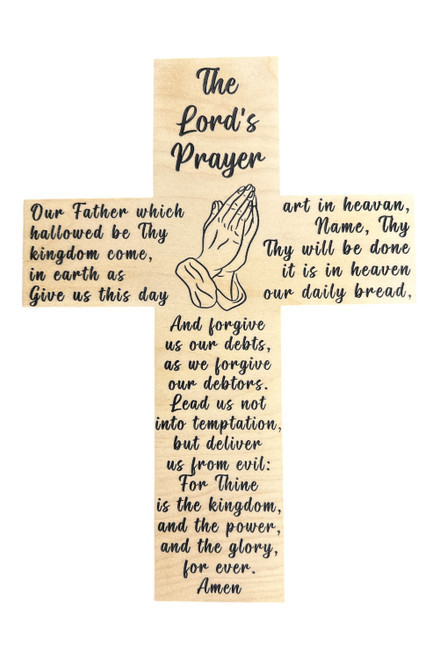 The
Lord's
Prayer
Our Father which art in heavan,
hallowed be Thy Name, Thy
kingdom come, Thy will be done
in earth as it is in heaven
Give us this day our daily bread,
And forgive
us our debts,
as we forgive
our debtors.
Lead us not
into temptation,
but deliver
us from evil:
For Thine
is the kingdom,
and the power,
and the glory,
for ever.
Amen